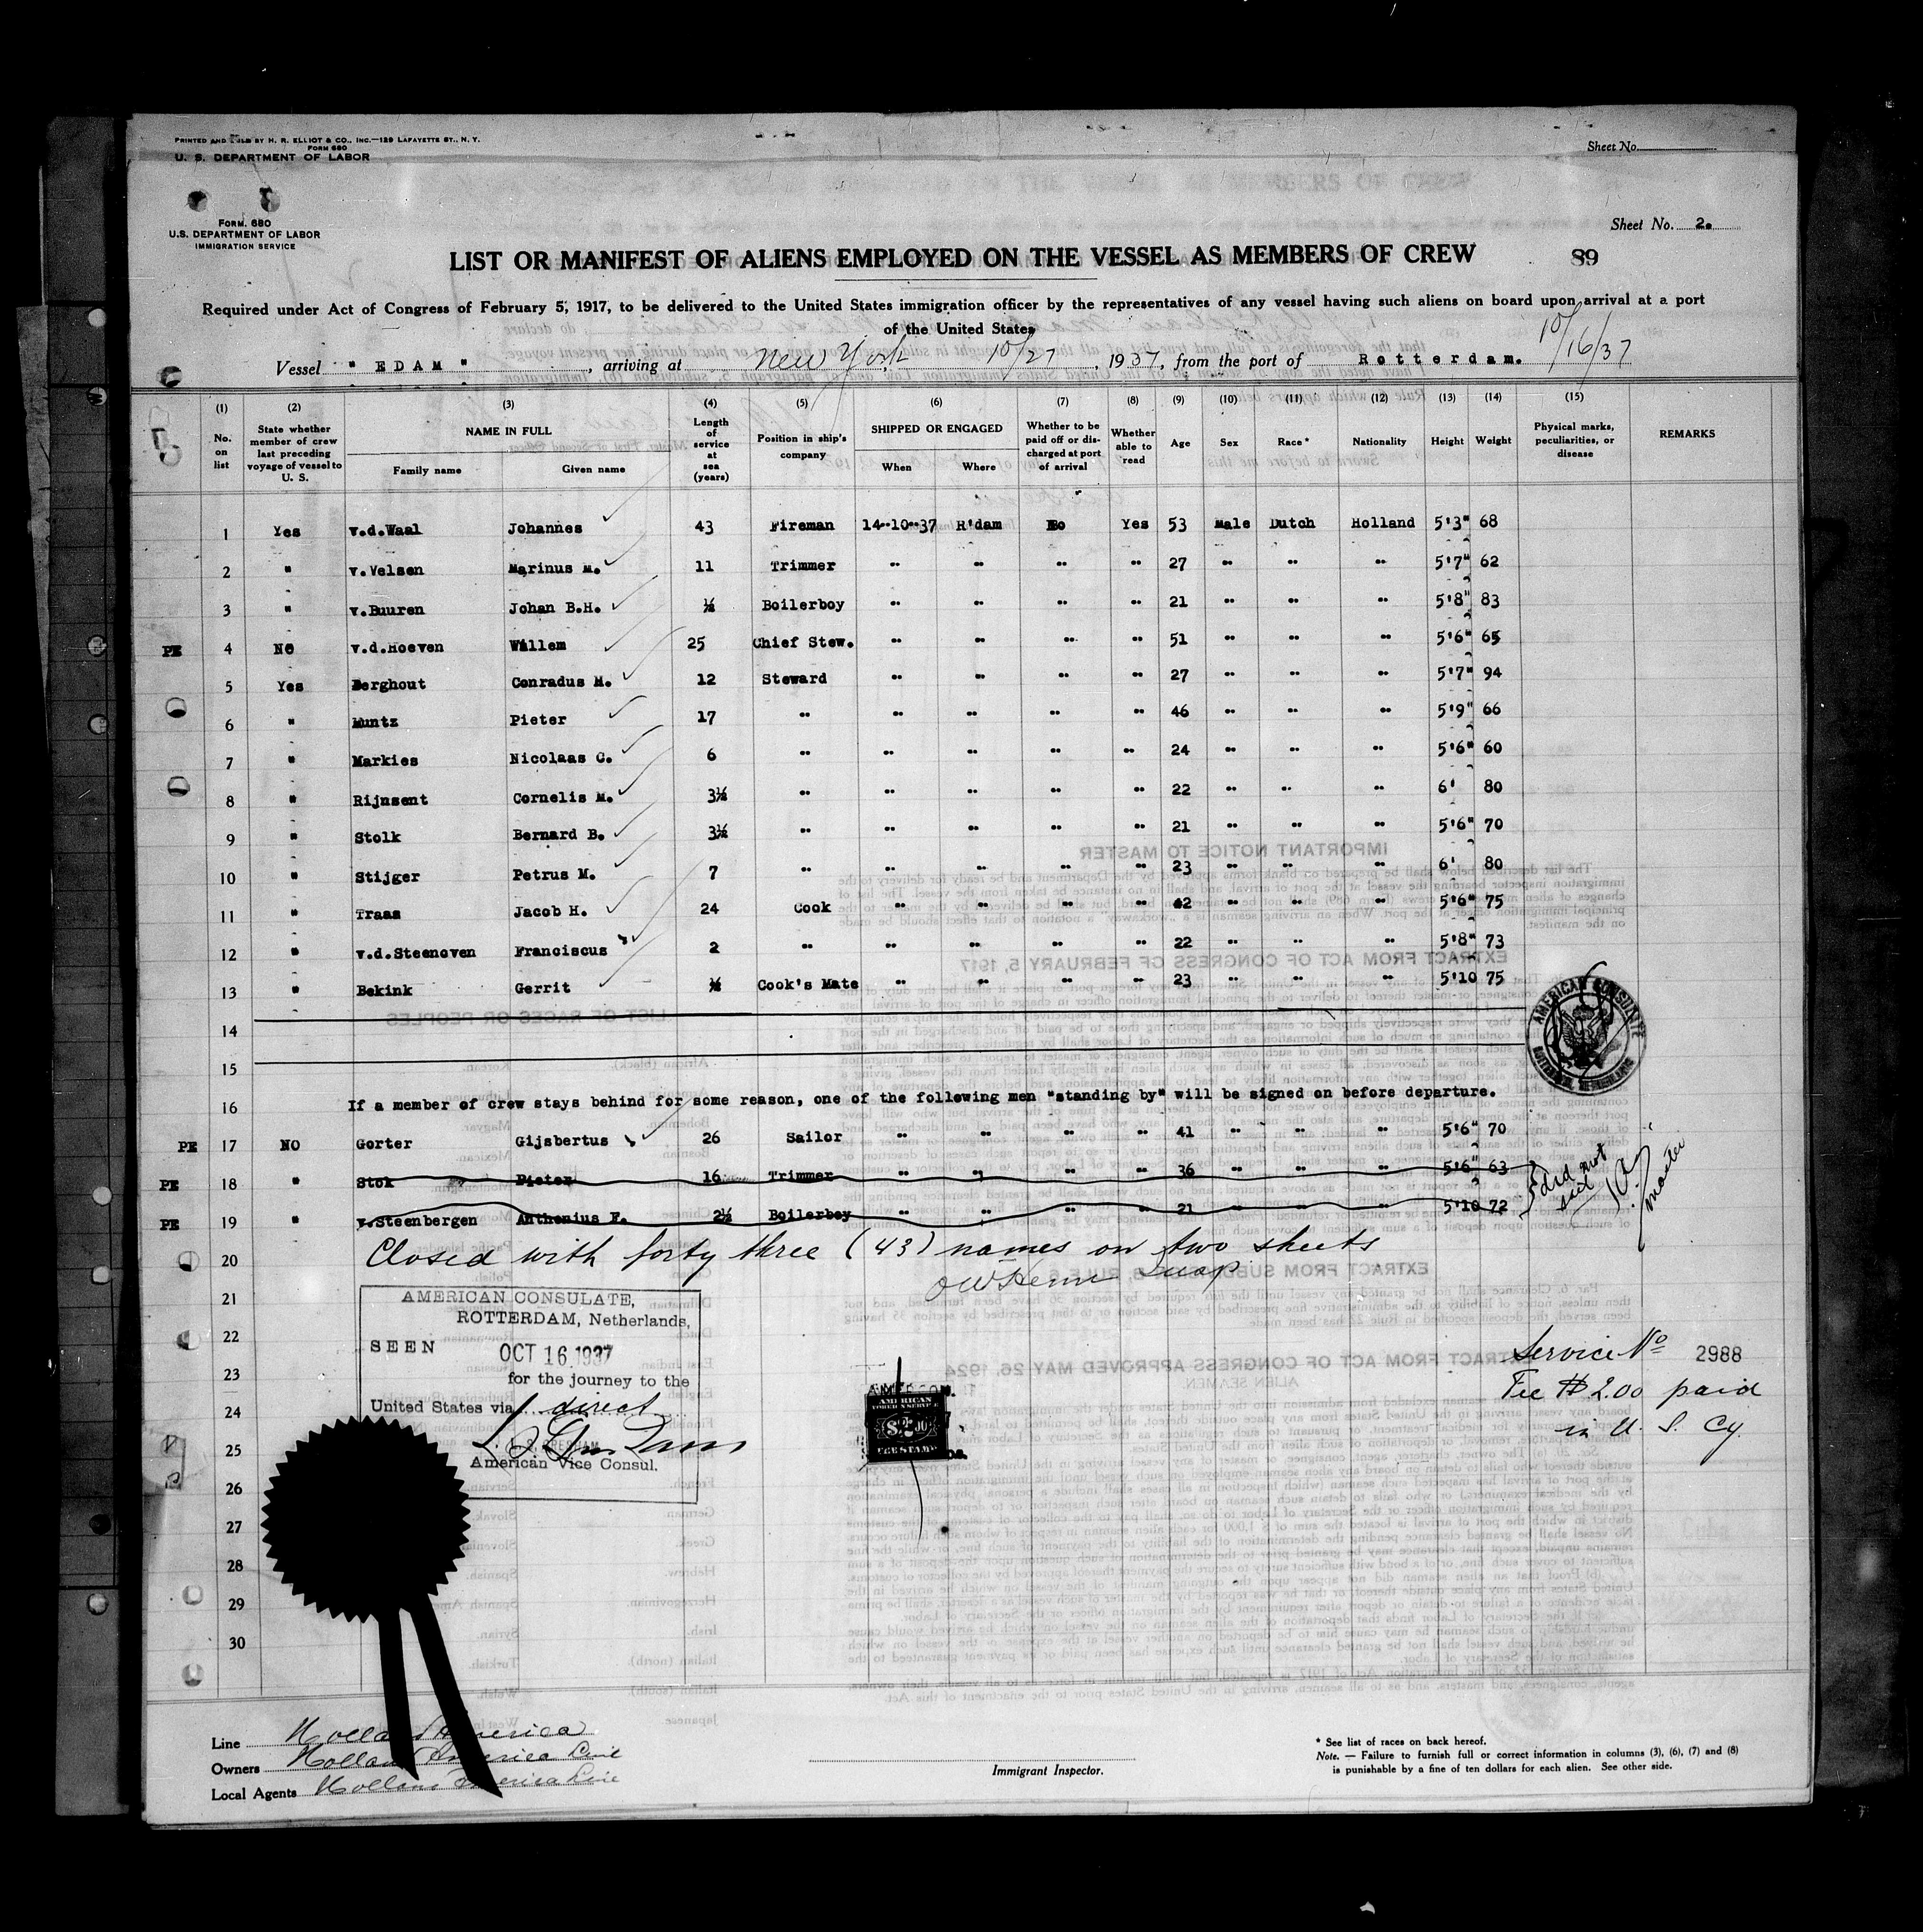 PRINTED AND SOLD BY H. R. ELLIOT & CO., INC.—129 LAFAYETTE ST., N. Y.
FORM 680
U. S. DEPARTMENT OF LABOR
Sheet No.
FORM. 680
U.S. DEPARTMENT OF LABOR
IMMIGRATION SERVICE
Sheet No. 2.
LIST OR MANIFEST OF ALIENS EMPLOYED ON THE VESSEL AS MEMBERS OF CREW
89
Required under Act of Congress of February 5, 1917, to be delivered to the United States immigration officer by the representatives of any vessel having such aliens on board upon arrival at a port
of the United States
Vessel " EDAM ", arriving at New York 10/27, 1937, from the port of Rotterdam. 10/16/37
(1) (2) (3) (4) (5) (6) (7) (8) (9) (10) (11) (12) (13) (14) (15)
No. on list
State whether member of crew last preceding voyage of vessel to U. S.
NAME IN FULL
Family name Given name
Length of service at sea (years)
Position in ship's company
SHIPPED OR ENGAGED
When Where
Whether to be paid off or discharged at port of arrival
Whether able to read
Age Sex Race* Nationality Height Weight
Physical marks, peculiarities, or disease
REMARKS
1 Yes v.d.Waal Johannes 43 Fireman 14-10-37 R'dam No Yes 53 Male Dutch Holland 5'3" 68
2 " v.Velsen Marinus M. 11 Trimmer " " " " 27 " " " 5'7" 62
3 " v.Buuren Johan B.H. ½ Boilerboy " " " " 21 " " " 5'8" 83
PE 4 No v.d.Hoeven Willem 25 Chief Stew. " " " " 51 " " " 5'6" 65
5 Yes Berghout Conradus M. 12 Steward " " " " 27 " " " 5'7" 94
6 " Muntz Pieter 17 " " " " " 46 " " " 5'9" 66
7 " Markies Nicolaas C. 6 " " " " " 24 " " " 5'6" 60
8 " Rijnsent Cornelis M. 3½ " " " " " 22 " " " 6' 80
9 " Stolk Bernard B. 3½ " " " " " 21 " " " 5'6" 70
10 " Stijger Petrus M. 7 " " " " " 23 " " " 6' 80
11 " Traas Jacob H. 24 Cook " " " " 42 " " " 5'6" 75
12 " v.d.Steenoven Franciscus 2 " " " " " 22 " " " 5'8" 73
13 " Bekink Gerrit ½ Cook's Mate " " " " 23 " " " 5'10 75
14
15
AMERICAN CONSULATE
16 If a member of crew stays behind for some reason, one of the following men "standing by" will be signed on before departure.
PE 17 NO Gorter Gijsbertus 26 Sailor " " " " 41 " " " 5'6" 70
PE 18 " Stok Pieter 16 Trimmer " " " " 36 " " " 5'6" 63
PE 19 " v.Steenbergen Anthonius F. 2½ Boilerboy " " " " 21 " " " 5'10 72
did not
master
20 Closed with forty three (43) names on two sheets
21
22
23
24
25
26
27
28
29
30
AMERICAN CONSULATE,
ROTTERDAM, Netherlands,
SEEN OCT 16 1937
for the journey to the
United States via direct
American Vice Consul.
AMERICAN
FOREIGN SERVICE
FEE STAMP
Service No 2988
Fee $2.00 paid
in U. S. Cy.
Line Holland America
Owners Holland America Line
Local Agents Holland America Line
Immigrant Inspector.
* See list of races on back hereof.
Note. — Failure to furnish full or correct information in columns (3), (6), (7) and (8)
is punishable by a fine of ten dollars for each alien. See other side.